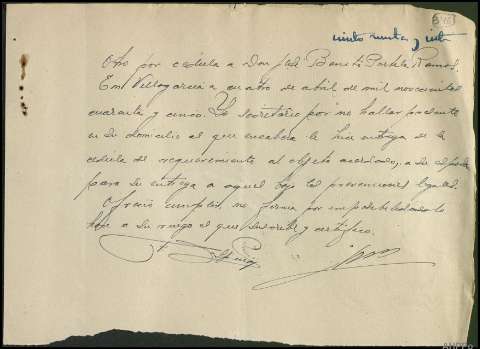 ciento noventa y siete
Otro por cedula a Don José Benito Portela Ramos
En Villagarcia a cuatro de abril de mil novecientos
cuarenta y cinco. Yo secretario por no hallar presente
en su domicilio al que encabeza le hice entrega de la
cedula de requerimiento al objeto acordado, a su
para su entrega a aquel bajo las prevenciones legales.
Ofreció cumplir, no firma por impedido haciendolo
a su ruego el que suscribe y certifico.